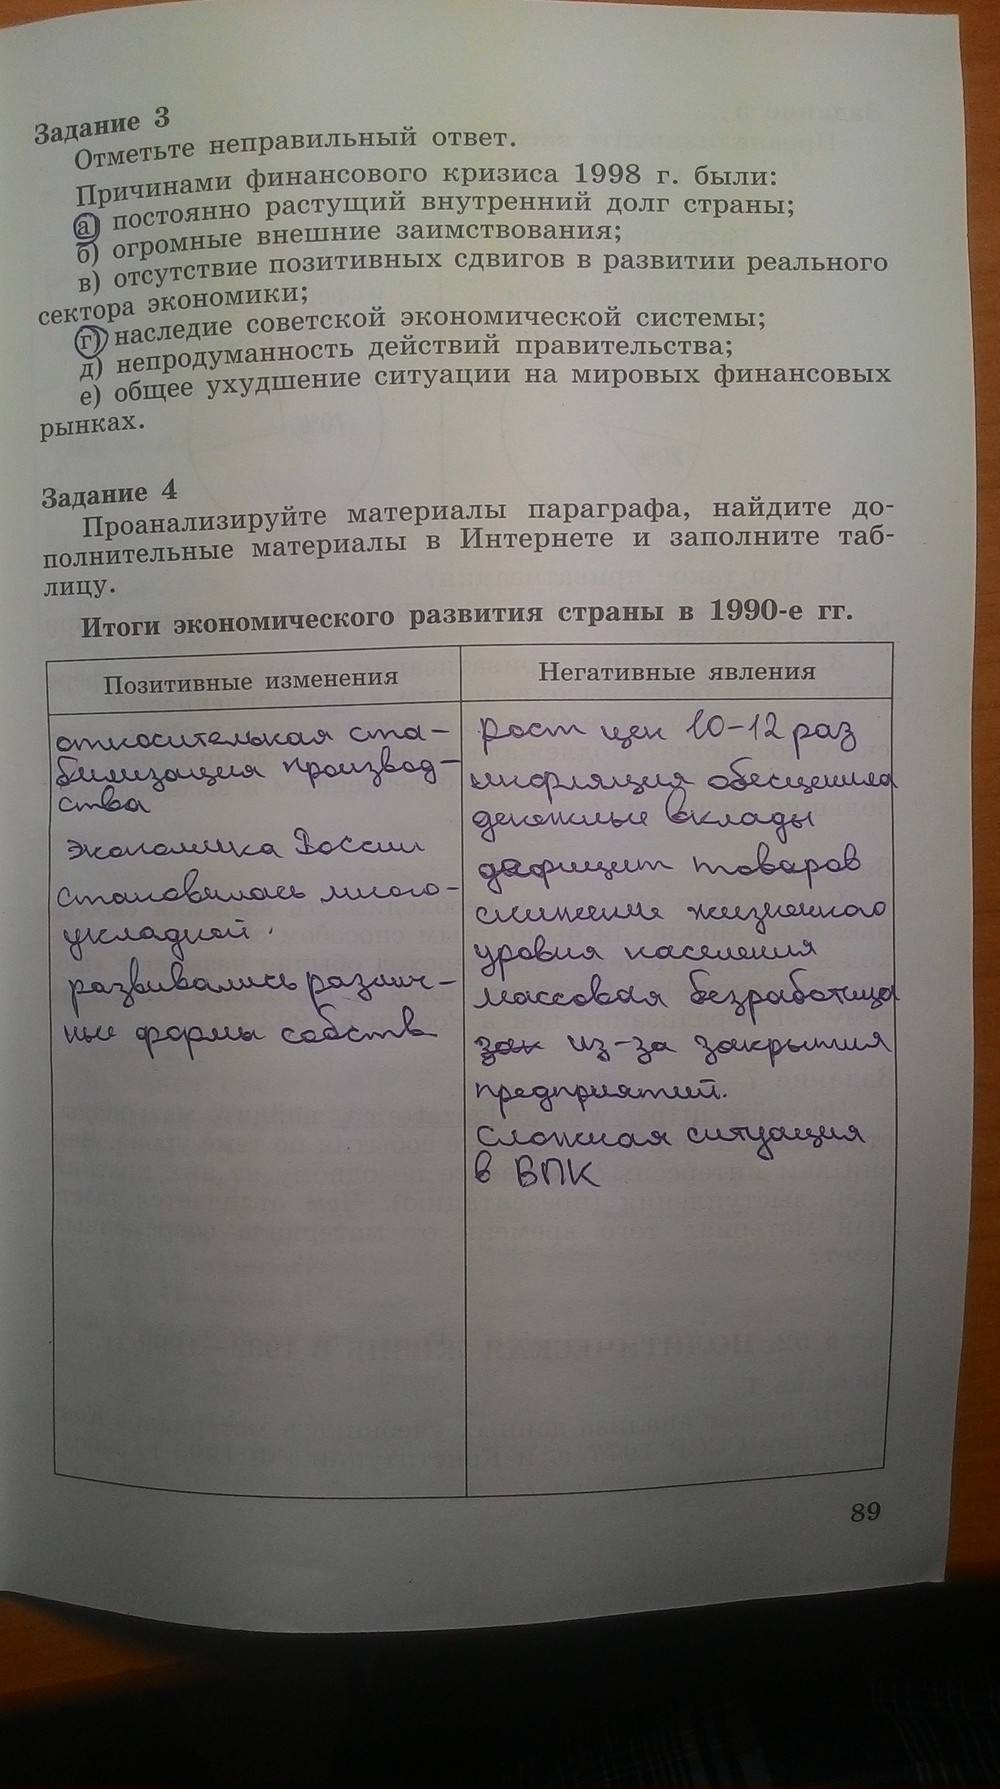 Задание 3
Отметьте неправильный ответ.
Причинами финансового кризиса 1998 г. были:
а) постоянно растущий внутренний долг страны;
б) огромные внешние заимствования;
в) отсутствие позитивных сдвигов в развитии реального
сектора экономики;
г) наследие советской экономической системы;
д) непродуманность действий правительства;
е) общее ухудшение ситуации на мировых финансовых
рынках.
Задание 4
Проанализируйте материалы параграфа, найдите до-
полнительные материалы в Интернете и заполните таб-
лицу.
Итоги экономического развития страны в 1990-е гг.
Позитивные изменения
относительная ста-
билизация производ-
ства
экономика России
становилась много-
укладной.
развивались различ-
ные формы собств
Негативные явления
Рост цен 10-12 раз
инфляция обесценила
денежные вклады
дефицит товаров
снижение жизненного
уровня населения
массовая безработица
зак из-за закрытия
предприятий.
Сложная ситуация
в ВПК
89